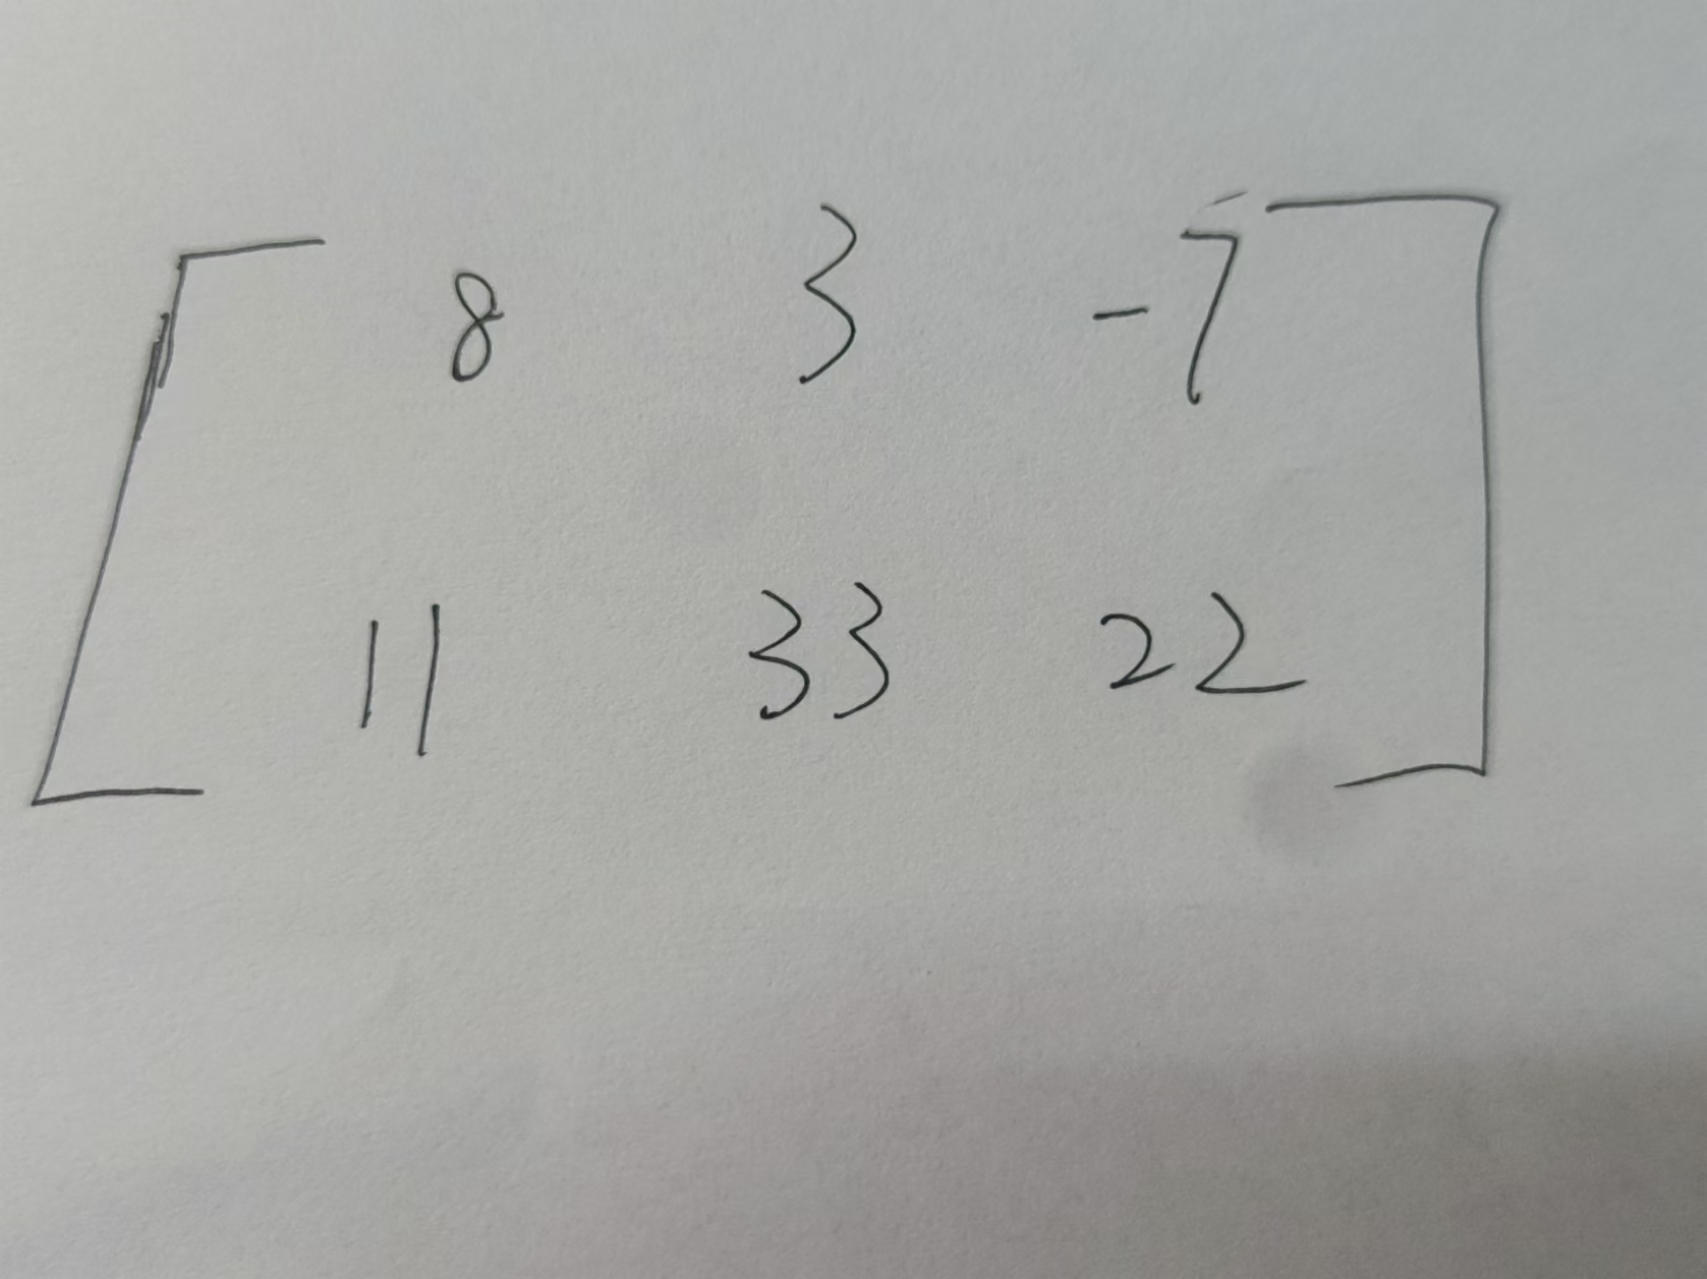 8 3 -7
11 33 22